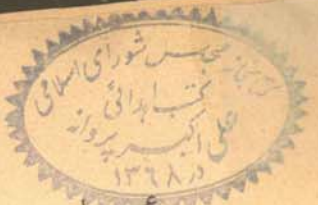 مجلس شورای اسلامی
کتب اهدائی
علی اکبر پروانه
در ۱۳۶۸